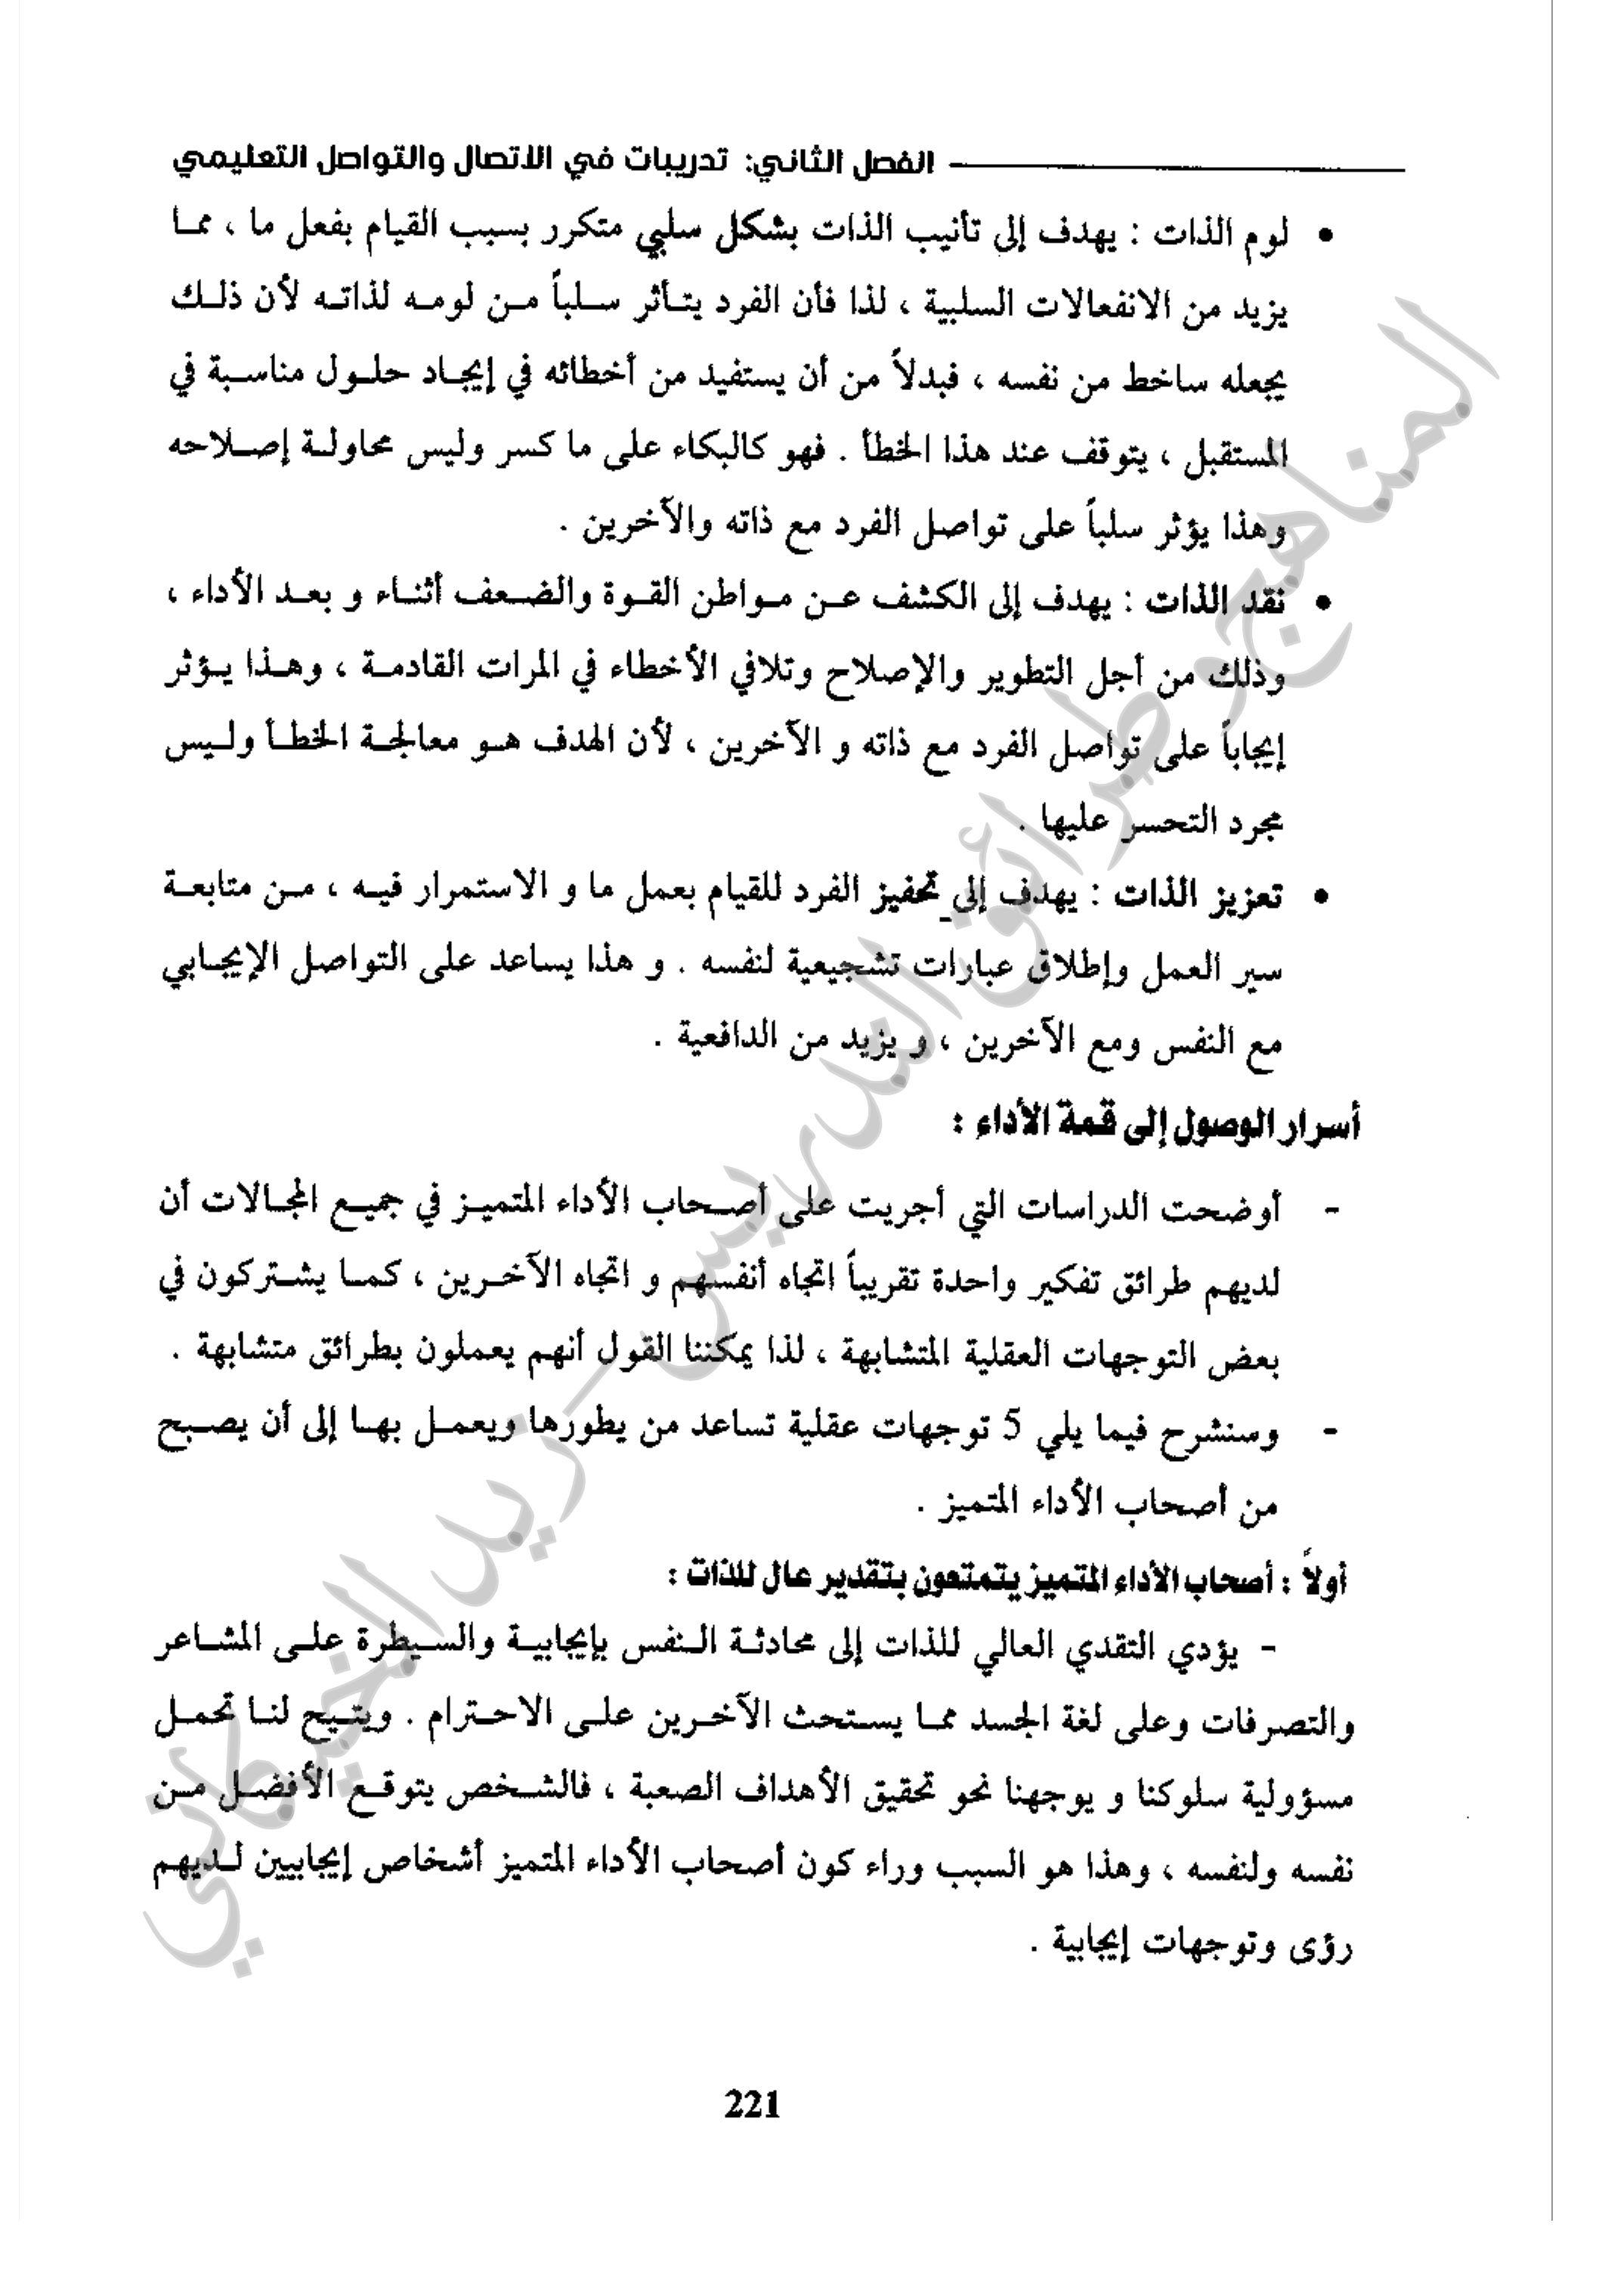 الفصل الثاني: تدريبات في الاتصال والتواصل التعليمي
• لوم الذات : يهدف إلى تأنيب الذات بشكل سلبي متكرر بسبب القيام بفعل ما ، مما
يزيد من الانفعالات السلبية ، لذا فأن الفرد يتأثر سلباً من لومه لذاته لأن ذلك
يجعله ساخط من نفسه ، فبدلاً من أن يستفيد من أخطائه في إيجاد حلول مناسبة في
المستقبل ، يتوقف عند هذا الخطأ . فهو كالبكاء على ما كسر وليس محاولة إصلاحه
وهذا يؤثر سلباً على تواصل الفرد مع ذاته والآخرين .
• نقد الذات : يهدف إلى الكشف عن مواطن القوة والضعف أثناء و بعد الأداء ،
وذلك من أجل التطوير والإصلاح وتلافي الأخطاء في المرات القادمة ، وهذا يؤثر
إيجاباً على تواصل الفرد مع ذاته و الآخرين ، لأن الهدف هو معالجة الخطأ وليس
مجرد التحسر عليها .
• تعزيز الذات : يهدف إلى تحفيز الفرد للقيام بعمل ما و الاستمرار فيه ، من متابعة
سير العمل وإطلاق عبارات تشجيعية لنفسه . و هذا يساعد على التواصل الإيجابي
مع النفس ومع الآخرين ، و يزيد من الدافعية .
أسرار الوصول إلى قمة الأداء :
- أوضحت الدراسات التي أجريت على أصحاب الأداء المتميز في جميع المجالات أن
لديهم طرائق تفكير واحدة تقريباً اتجاه أنفسهم و اتجاه الآخرين ، كما يشتركون في
بعض التوجهات العقلية المتشابهة ، لذا يمكننا القول أنهم يعملون بطرائق متشابهة .
- وسنشرح فيما يلي 5 توجهات عقلية تساعد من يطورها ويعمل بها إلى أن يصبح
من أصحاب الأداء المتميز .
أولاً : أصحاب الأداء المتميز يتمتعون بتقدير عال للذات :
- يؤدي التقدي العالي للذات إلى محادثة النفس بإيجابية والسيطرة على المشاعر
والتصرفات وعلى لغة الجسد مما يستحث الآخرين على الاحترام . ويتيح لنا تحمل
مسؤولية سلوكنا و يوجهنا نحو تحقيق الأهداف الصعبة ، فالشخص يتوقع الأفضل من
نفسه ولنفسه ، وهذا هو السبب وراء كون أصحاب الأداء المتميز أشخاص إيجابيين لديهم
رؤى وتوجهات إيجابية .
221
المناهج وطرائق التدريس - زيد الخيكاني